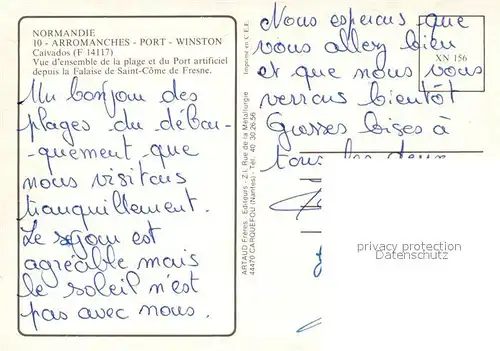 NORMANDIE
10 - ARROMANCHES - PORT - WINSTON
Caivados (F 14117)
Vue d'ensemble de la plage et du Port artificiel
depuis la Falaise de Saint-Côme de Fresne.
Un bonjour des
plages du débar-
-quement, que
nous visitons
tranquillement.
Le séjour est
agréable mais
le soleil n'est
pas avec nous.
Imprimé en C.E.E.
ARTAUD Frères - Editeurs - Z.I. Rue de la Métallurgie
44470 CARQUEFOU (Nantes) - Tél. 40 30 26 56
Nous espérons que
vous allez bien
et que nous vous
verrons bientôt
Grosses bises à
tous les deux
XN 156
privacy protection
Datenschutz